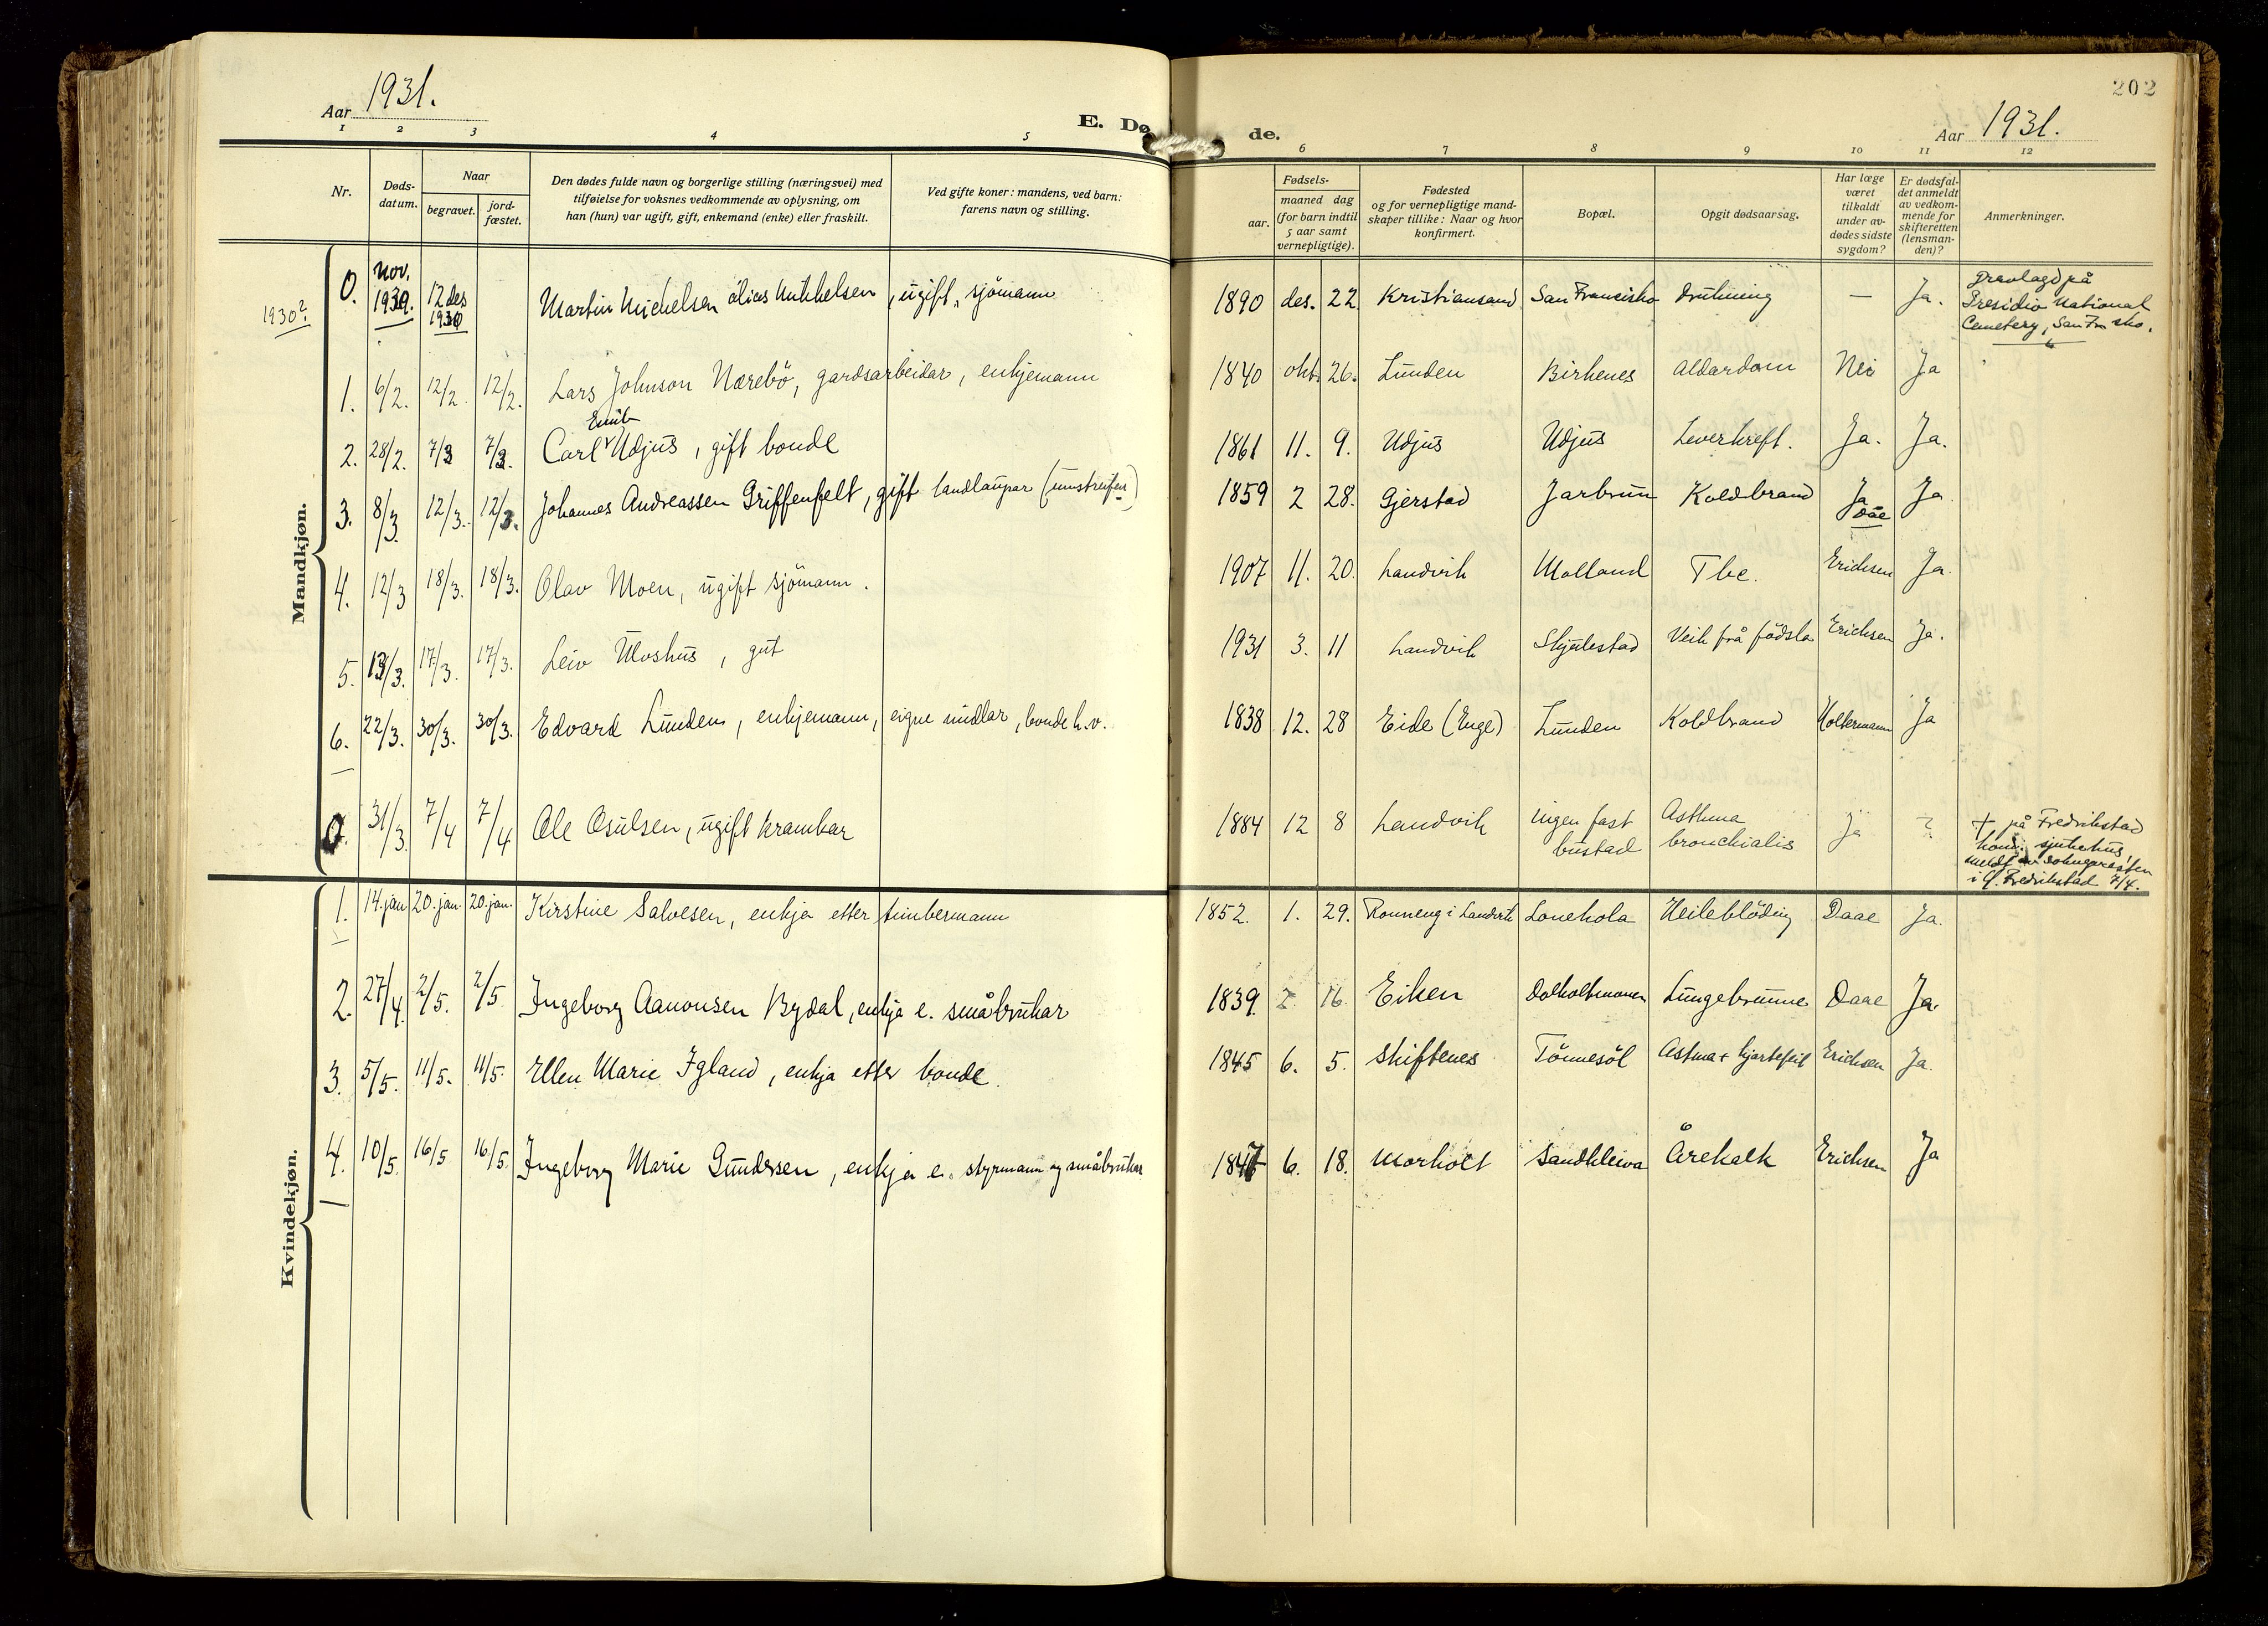 202
Aar 1931.
E. Dø de.
Aar 1931.
1 2 3 4 5 6 7 8 9 10 11 12
Nr.
Døds-
datum.
Naar
begravet.
jord-
fæstet.
Den dødes fulde navn og borgerlige stilling (næringsvei) med
tilføielse for voksnes vedkommende av oplysning, om
han (hun) var ugift, gift, enkemand (enke) eller fraskilt.
Ved gifte koner: mandens, ved barn:
farens navn og stilling.
Fødsels-
aar.
maaned dag
(for barn indtil
5 aar samt
vernepligtige).
Fødested
og for vernepligtige mand-
skaper tillike: Naar og hvor
konfirmert.
Bopæl.
Opgit dødsaarsag.
Har læge
været
tilkaldt
under av-
dødes sidste
sygdom?
Er dødsfal-
det anmeldt
av vedkom-
mende for
skifteretten
(lensman-
den)?
Anmerkninger.
Mandkjøn.
1930?
0. nov. 1930. 12 des 1930 Martin Michelsen alias Mikkelsen, ugift, sjömann 1890 des. 22. Kristiansand San Francisko drukning — Ja. Gravlagd på
Presidio National
Cemetery, San Fr sko.
1. 6/2. 12/2. 12/2. Lars Johnson Nærebö, gardsarbeidar, enkjemann 1840 okt. 26. Lunden Birkenes Alderdom Nei Ja
Emil
2. 28/2. 7/3 7/3. Carl Udjus, gift bonde 1861 11. 9. Udjus Udjus Leverkreft. Ja. Ja.
3. 8/3. 12/3. 12/3. Johannes Andreassen Griffenfelt, gift landlaupar (umstreifer) 1859 2 28. Gjerstad Jarbrun Koldbrand Ja Ja
Daae
4. 12/3 18/3. 18/3. Olav Moen, ugift sjömann. 1907 11. 20. Landvik Molland Tbc. Erichsen Ja.
5. 13/3. 17/3. 17/3. Leiv Ulvshus, gut 1931 3. 11 Landvik Skjulestad Veik frå födsla Erichsen Ja.
6. 22/3. 30/3. 30/3. Edvard Lunden, enkjemann, eigne midlar, bonde h.v. 1838 12. 28 Eide (Enge) Lunden Koldbrand Holtermann Ja
0. 31/3. 7/4 7/4 Ole Osulsen, ugift kramkar 1884 12 8 Landvik ingen fast
bustad Asthma
bronchialis Ja ? † på Fredrikstad
kom. sjukehus,
meldt av soknepresten
i Gl. Fredrikstad 7/4.
Kvindekjøn.
1. 14. jan 20. jan. 20. jan. Kirstine Salvesen, enkja etter timbermann 1852. 1. 29. Ronneng i Landvik Lonekola Heileblöding Daae Ja.
2. 27/4. 2/5. 2/5. Ingeborg Aanonsen Bydal, enkja e. småbrukar 1839. 2. 16. Eiken Dolholtmonen Lungebrunne Daae Ja.
3. 5/5. 11/5. 11/5. Ellen Marie Igland, enkja etter bonde. 1845 6. 5. Skiftenes Tönnesöl Astma + hjartefeil Erichsen Ja.
4. 10/5. 16/5 16/5. Ingeborg Marie Gundersen, enkja e. styrmann og småbrukar 1847 6. 18. Morholt Sandkleiva Årekalk Erichsen Ja